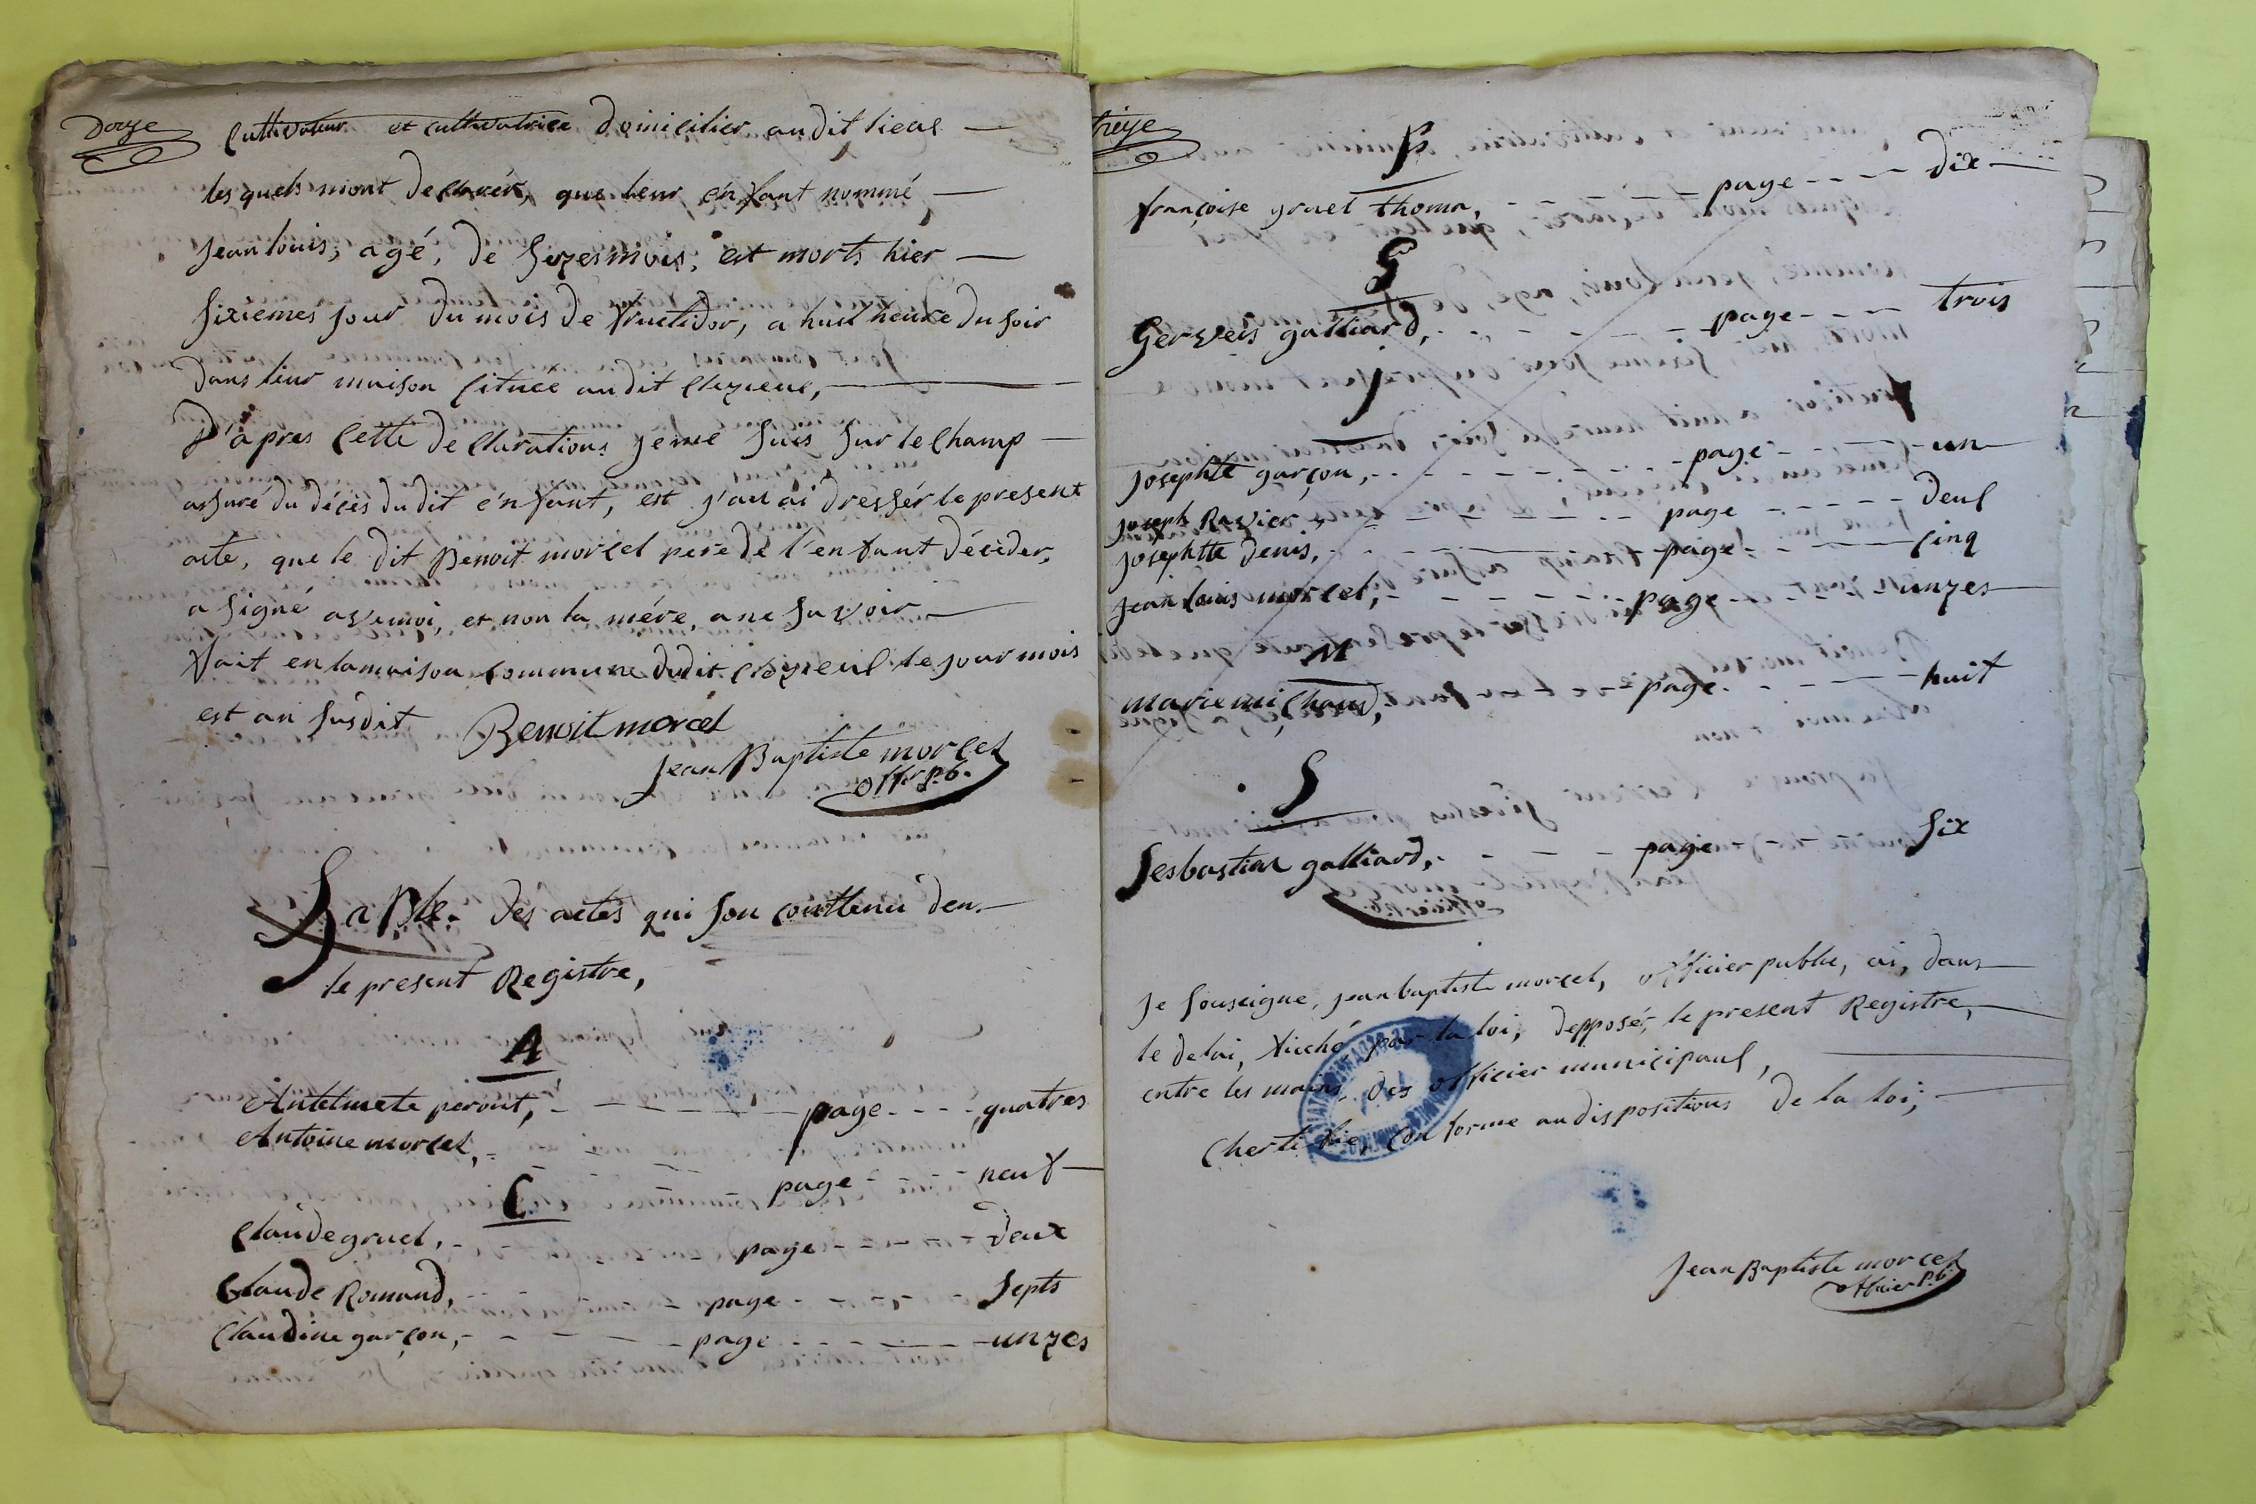 Douze
Cultivateur et cultivatrice domicilier audit lieul
les quels mont declarér, que leur énfant nommé
jean louis, agé, de seizesmois, est morts hier
sixiémes jour du mois de fructidor, a huit heure du soir
dans leur maison située audit
D'apres cette declarations jeme suis sur le champ
assuré du décès dudit énfant, est j'an ai dressér le present
acte, que le dit Benoit morcel pere de l'enfant décéder,
a signé avemoi, et non la mére, a ne savoir
fait en lamaison commune dudit le jour mois
est an susdit Benoit morcel
Jean Baptiste morcel
offer p.b.
Table. des actes qui son conttenu den
le present Registre,
A
Antelmete peront, page quatres
Antoine morcel, page neuf
C
Claude gruel, page deux
Claude Romand, page septs
Claudine garçon, page unzes
treize
F
françoise gruel thoma, page dix
G
Gerveis galliard, page trois
J
Josephte garçon, page un
joseph Ravier, page deul
Josephtte denis, page cinq
Jean louis morcel, page unzes
M
marie michaud, page huit
S
Sesbastian galliard, page six
Je souseigne, jean baptiste morcel, officier publie, ai, dans
le delai, ficché, par la loi, depposér, le present Registre,
entre les mains, des officier municipaul,
Cherti fie, conforme au dispositions de la loi,
Jean Baptiste morcel
officier p.b.